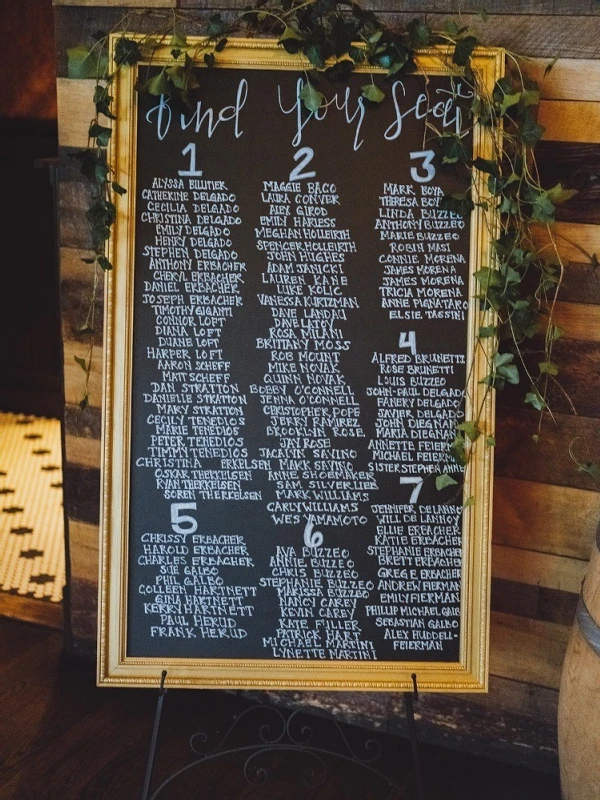 Find Your Seat
1
ALYSSA BILLMIER
CATHERINE DELGADO
CECILIA DELGADO
CHRISTINA DELGADO
EMILY DELGADO
HENRY DELGADO
STEPHEN DELGADO
ANTHONY ERBACHER
CHERYL ERBACHER
DANIEL ERBACHER
JOSEPH ERBACHER
TIMOTHY GIGANTI
CONNOR LOFT
DIANA LOFT
DUANE LOFT
HARPER LOFT
AARON SCHEFF
MATT SCHEFF
DAN STRATTON
DANIELLE STRATTON
MARY STRATTON
CECILY TENEDIOS
MARIE TENEDIOS
PETER TENEDIOS
TIMMY TENEDIOS
CHRISTINA ERKELSEN
OSKAR THERKELSEN
RYAN THERKELSEN
SOREN THERKELSEN
2
MAGGIE BACO
LAURA CONYER
ALEX GIROD
EMILY HARLESS
MEGHAN HOLLEIRTH
SPENCER HOLLEIRTH
JOHN HUGHES
ADAM JANICKI
LAUREN KANE
LUKE KOLIC
VANESSA KURTZMAN
DAVE LANDAU
DAVE LATOY
ROSA MILANI
BRITTANY MOSS
ROB MOUNT
MIKE NOVAK
QUINN NOVAK
BOBBY O'CONNELL
JENNA O'CONNELL
CHRISTOPHER POPE
JERRY RAMIREZ
BROOKLYN ROSE
JAY ROSE
JACALYN SAVINO
MARK SAVINO
ANNE SHOEMAKER
SAM SILVERLIEB
MARK WILLIAMS
CARLY WILLIAMS
WES YAMAMOTO
3
MARK BOYA
THERESA BOYA
LINDA BUZZEO
ANTHONY BUZZEO
MARIE BUZZEO
ROBIN MASI
CONNIE MORENA
JAMES MORENA
JAMES MORENA
TRICIA MORENA
ANNE PIGNATARO
ELSIE TASSINI
4
ALFRED BRUNETTI
ROSE BRUNETTI
LOUIS BUZZEO
JOHN-PAUL DELGADO
FANERY DELGADO
JAVIER DELGADO
JOHN DIEGNAN
MARIA DIEGNAN
ANNETTE FEIERM
MICHAEL FEIERM
SISTER STEPHEN ANNE
5
CHRISSY ERBACHER
HAROLD ERBACHER
CHARLES ERBACHER
SUE GALBO
PHIL GALBO
COLLEEN HARTNETT
GINA HARTNETT
KERRY HARTNETT
PAUL HERUD
FRANK HERUD
6
AVA BUZZEO
ANNIE BUZZEO
CHRIS BUZZEO
STEPHANIE BUZZEO
MARISSA BUZZEO
NANCY CAREY
KEVIN CAREY
KATE FULLER
PATRICK HART
MICHAEL MARTINI
LYNETTE MARTINI
7
JENNIFER DE LANNOY
WILL DE LANNOY
ELLIE ERBACHER
KATIE ERBACHER
STEPHANIE ERBACHER
BRETT ERBACHER
GREG E ERBACHER
ANDREW FIERMAN
EMILY FIERMAN
PHILLIP MICHAEL GALBO
SEBASTIAN GALBO
ALEX HUDDELL-
FEIERMAN